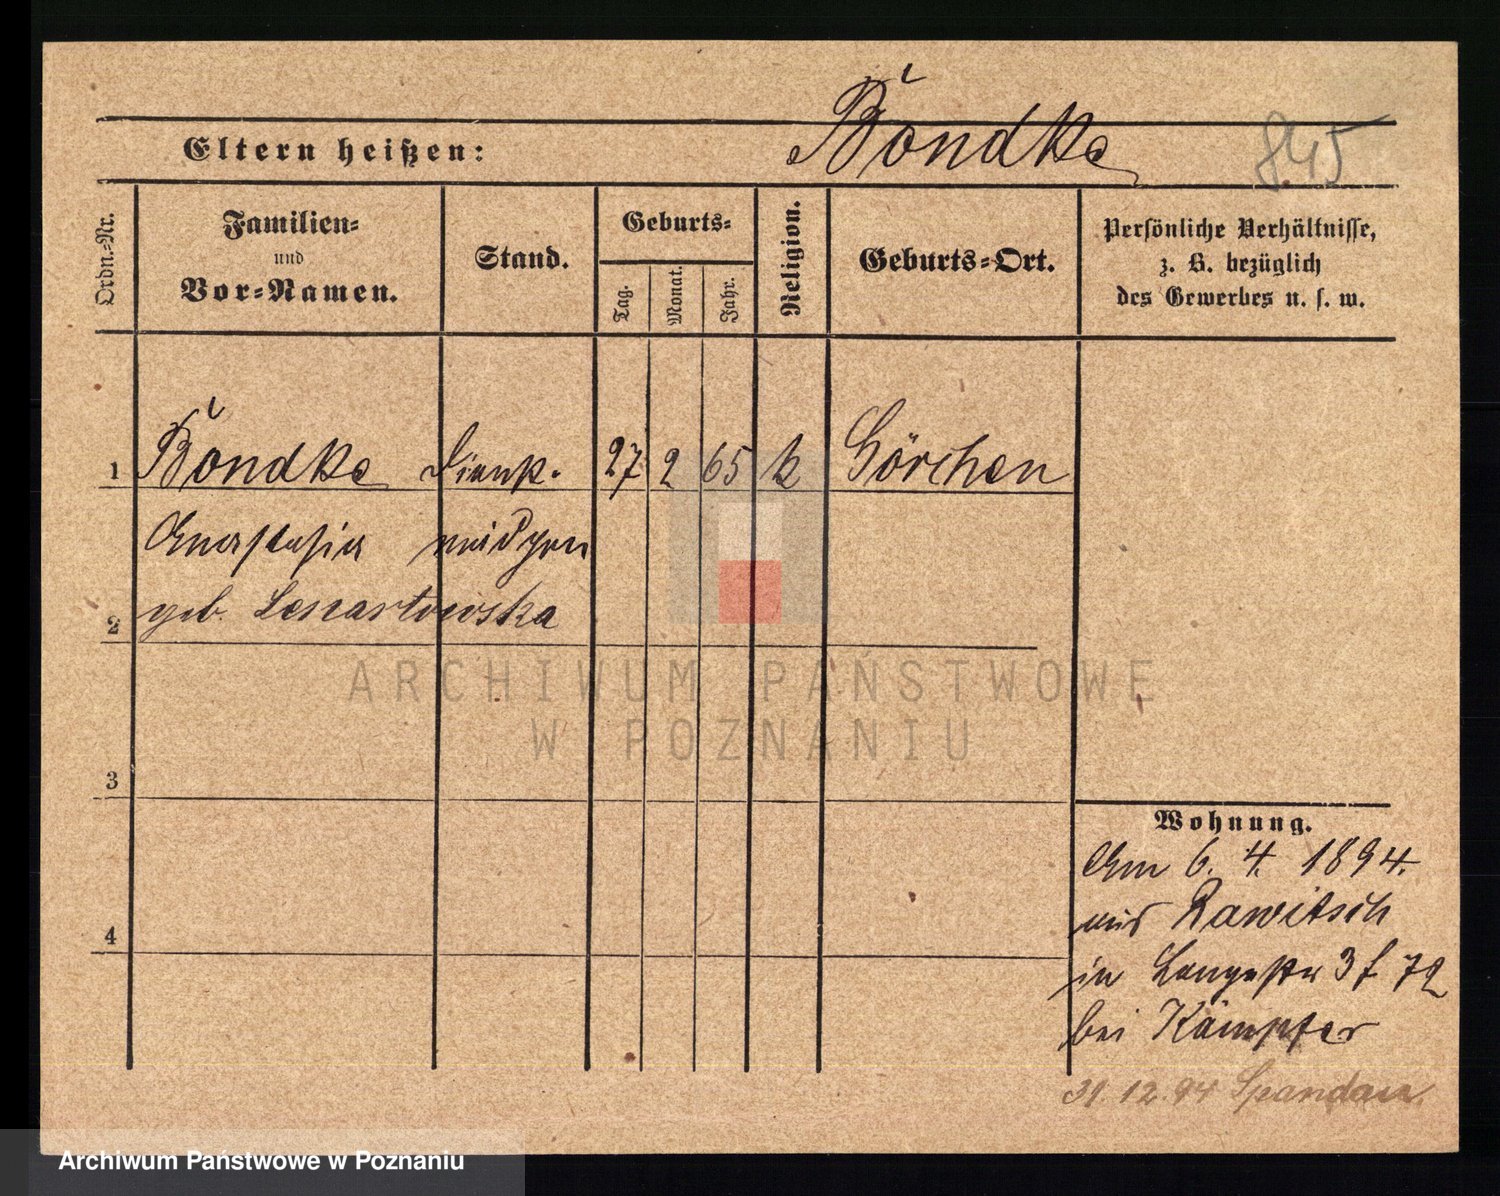 Böndke
845
Eltern heißen:
Ordn.-Nr.
Familien-
und
Vor-Namen.
Stand.
Geburts-
Tag.
Monat.
Jahr.
Religion.
Geburts-Ort.
Persönliche Verhältnisse,
z. B. bezüglich
des Gewerbes u. s. w.
1 Böndke Dienst- 27 2 65 k Görchen
Anastasia mädchen
2 geb.
ARCHIWUM PAŃSTWOWE
W POZNANIU
3
Wohnung.
Am 6. 4. 1894.
aus Rawitsch
4
in Langestr 3 f 72
bei Kämpfer
31.12.94 Spandau.
Archiwum Państwowe w Poznaniu